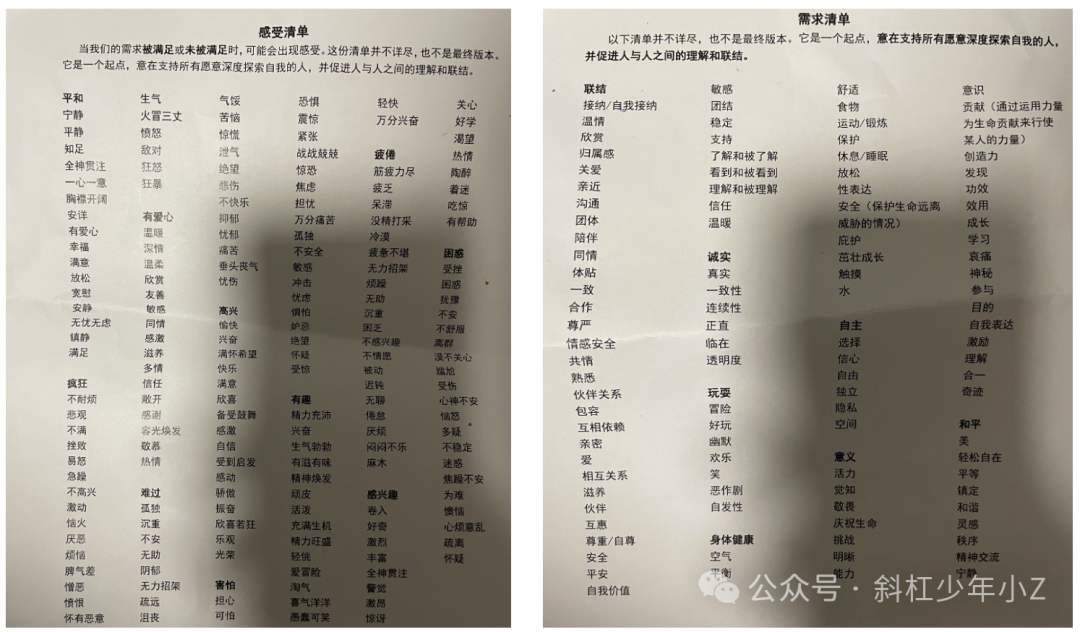 感受清单
当我们的需求被满足或未被满足时，可能会出现感受。这份清单并不详尽，也不是最终版本。
它是一个起点，意在支持所有愿意深度探索自我的人，并促进人与人之间的理解和联结。
平和
宁静
平静
知足
全神贯注
一心一意
胸襟开阔
安详
有爱心
幸福
满意
放松
宽慰
安静
无忧无虑
镇静
满足
疯狂
不耐烦
悲观
不满
挫败
易怒
急躁
不高兴
激动
恼火
厌恶
烦恼
脾气差
憎恶
愤恨
怀有恶意
生气
火冒三丈
愤怒
敌对
狂怒
狂暴
有爱心
温暖
深情
温柔
欣赏
友善
敏感
同情
感激
滋养
多情
信任
敞开
感谢
容光焕发
敬慕
热情
难过
孤独
沉重
不安
无助
阴郁
无力招架
疏远
沮丧
气馁
苦恼
惊慌
泄气
绝望
悲伤
不快乐
抑郁
忧郁
痛苦
垂头丧气
忧伤
高兴
愉快
兴奋
满怀希望
快乐
满意
欣喜
备受鼓舞
感激
自信
受到启发
感动
骄傲
振奋
欣喜若狂
乐观
光荣
害怕
担心
可怕
恐惧
震惊
紧张
战战兢兢
惊恐
焦虑
担忧
万分痛苦
孤独
不安全
敏感
冲击
忧虑
惧怕
妒忌
绝望
怀疑
受惊
有趣
精力充沛
兴奋
生气勃勃
有滋有味
精神焕发
顽皮
活泼
充满生机
精力旺盛
轻佻
爱冒险
淘气
喜气洋洋
愚蠢可笑
轻快
万分兴奋
疲倦
筋疲力尽
疲乏
呆滞
没精打采
冷漠
疲惫不堪
无力招架
烦躁
无助
沉重
困乏
不感兴趣
不情愿
被动
迟钝
无聊
倦怠
厌烦
闷闷不乐
麻木
感兴趣
卷入
好奇
激烈
丰富
全神贯注
警觉
激昂
惊讶
关心
好学
渴望
热情
陶醉
着迷
吃惊
有帮助
困惑
受挫
困惑
犹豫
不安
不舒服
离群
漠不关心
尴尬
受伤
心神不安
恼怒
多疑
不稳定
迷惑
焦躁不安
为难
懊恼
心烦意乱
疏离
怀疑
需求清单
以下清单并不详尽，也不是最终版本。它是一个起点，意在支持所有愿意深度探索自我的人，
并促进人与人之间的理解和联结。
联结
接纳/自我接纳
温情
欣赏
归属感
关爱
亲近
沟通
团体
陪伴
同情
体贴
一致
合作
尊严
情感安全
共情
熟悉
伙伴关系
包容
互相依赖
亲密
爱
相互关系
滋养
伙伴
互惠
尊重/自尊
安全
平安
自我价值
敏感
团结
稳定
支持
了解和被了解
看到和被看到
理解和被理解
信任
温暖
诚实
真实
一致性
连续性
正直
临在
透明度
玩耍
冒险
好玩
幽默
欢乐
笑
恶作剧
自发性
身体健康
空气
平衡
舒适
食物
运动/锻炼
保护
休息/睡眠
放松
性表达
安全（保护生命远离
威胁的情况）
庇护
茁壮成长
触摸
水
自主
选择
信心
自由
独立
隐私
空间
意义
活力
觉知
敬畏
庆祝生命
挑战
明晰
能力
意识
贡献（通过运用力量
为生命贡献来行使
某人的力量）
创造力
发现
功效
效用
成长
学习
哀痛
神秘
参与
目的
自我表达
激励
理解
合一
奇迹
和平
美
轻松自在
平等
镇定
和谐
灵感
秩序
精神交流
宁静
公众号·斜杠少年小Z